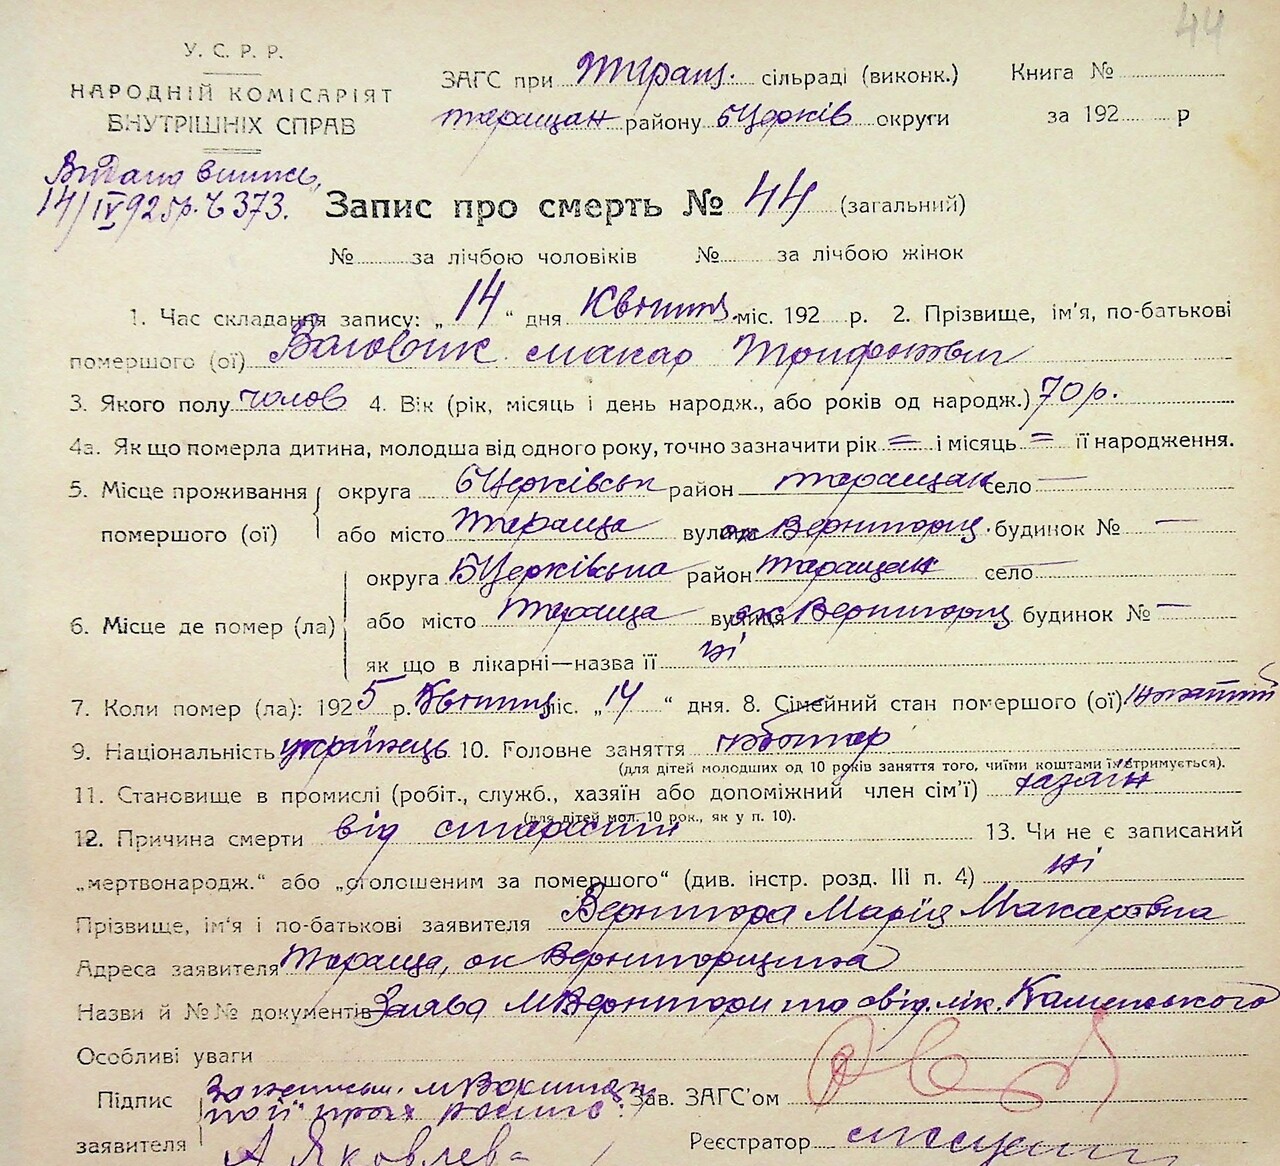 44
У. С. Р. Р.
НАРОДНІЙ КОМІСАРІЯТ
ВНУТРІШНІХ СПРАВ
ЗАГС при Таращ. сільраді (виконк.)
Книга №
таращан району БЦерків округи
за 192 р
Видано випись
14/IV 925р. Ч 373.
Запис про смерть № 44 (загальний)
№ за лічбою чоловіків № за лічбою жінок
1. Час складання запису: „14“ дня Квітня міс. 192 р. 2. Прізвище, ім'я, по-батькові
помершого (ої) Воловик Макар Трифонович
3. Якого полу чолов 4. Вік (рік, місяць і день народж., або років од народж.) 70 р.
4а. Як що померла дитина, молодша від одного року, точно зазначити рік = і місяць = її народження.
5. Місце проживання округа БЦерківськ район таращан село —
помершого (ої) або місто Тараща вулиця ок Вернигориц. будинок № —
округа БЦерківська район таращан село —
6. Місце де помер (ла) або місто Тараща вулиця ок Вернигориц будинок № —
як що в лікарні—назва її ні
7. Коли помер (ла): 1925 р. Квітня міс. „14“ дня. 8. Сімейний стан помершого (ої) Жонатий
9. Національність українець 10. Головне заняття хлібороб
(для дітей молодших од 10 років заняття того, чиїми коштами їх втримується).
11. Становище в промислі (робіт., служб., хазяїн або допоміжний член сім'ї) хазяїн
(для дітей мол. 10 рок., як у п. 10).
12. Причина смерти від старости 13. Чи не є записаний
„мертвонародж.“ або „оголошеним за помершого“ (див. інстр. розд. III п. 4) ні
Прізвище, ім'я і по-батькові заявителя Вернигора Марія Макаровна
Адреса заявителя Тараща, ок Вернигорщина
Назви й №№ документів Заява М Вернигори та свід. лік. Каменського
Особливі уваги
Підпис За неписьм. М
Зав. ЗАГС'ом
заявителя А Яковлева
Реєстратор